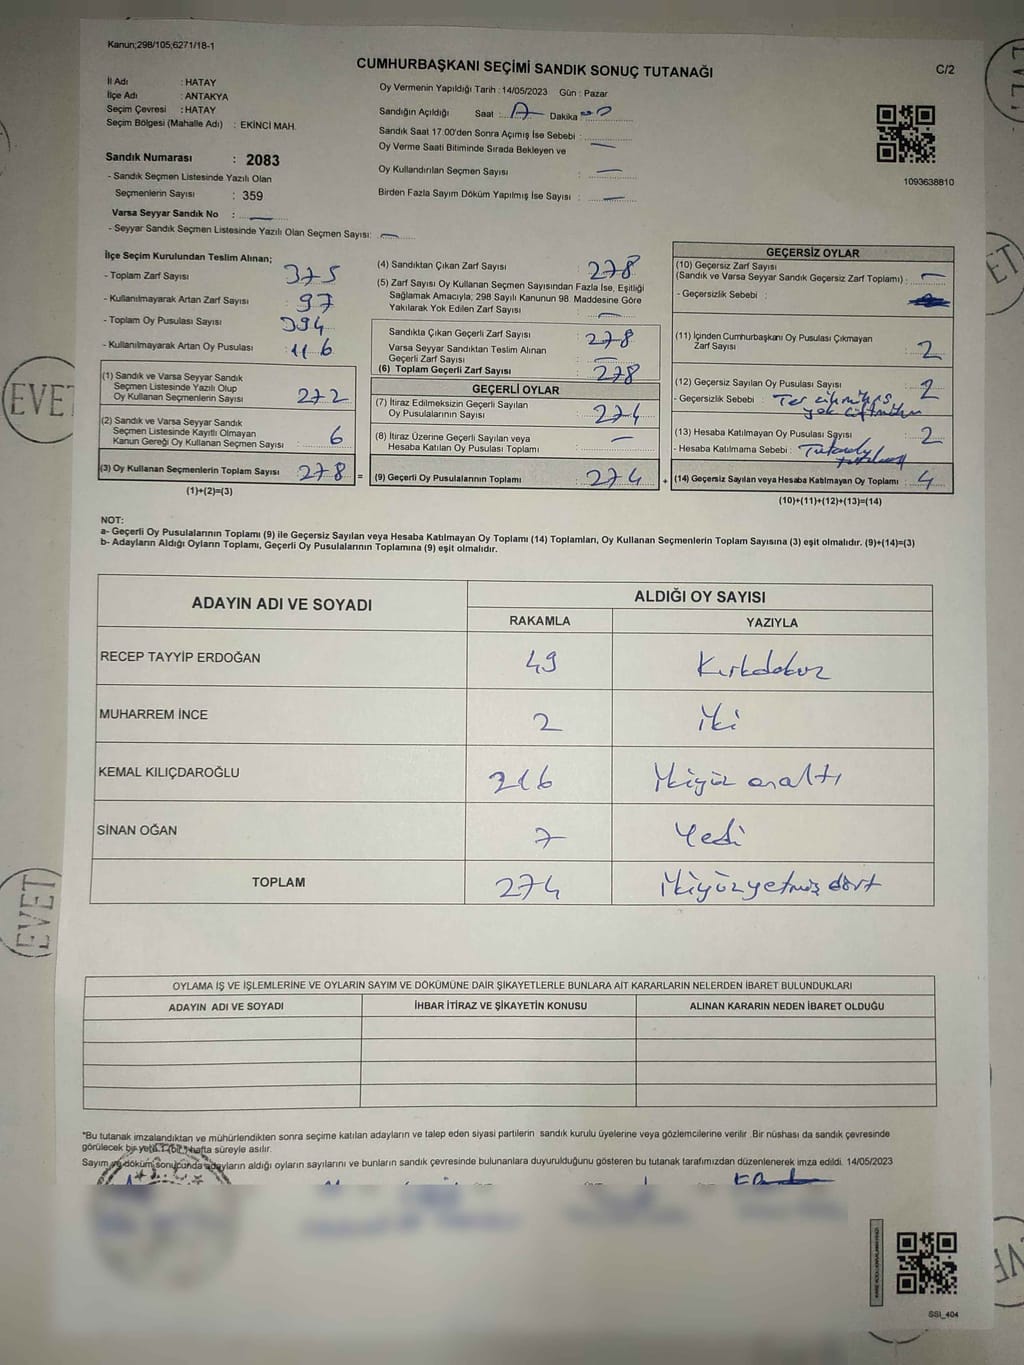 Kanun;298/105;6271/18-1
CUMHURBAŞKANI SEÇİMİ SANDIK SONUÇ TUTANAĞI
C/2
İl Adı : HATAY
İlçe Adı : ANTAKYA
Seçim Çevresi : HATAY
Seçim Bölgesi (Mahalle Adı) : EKİNCİ MAH.
Sandık Numarası : 2083
- Sandık Seçmen Listesinde Yazılı Olan
Seçmenlerin Sayısı : 359
Varsa Seyyar Sandık No :
- Seyyar Sandık Seçmen Listesinde Yazılı Olan Seçmen Sayısı:
Oy Vermenin Yapıldığı Tarih : 14/05/2023 Gün : Pazar
Sandığın Açıldığı Saat : Dakika
Sandık Saat 17.00'den Sonra Açımış İse Sebebi :
Oy Verme Saati Bitiminde Sırada Bekleyen ve
Oy Kullandırılan Seçmen Sayısı :
Birden Fazla Sayım Döküm Yapılmış İse Sayısı :
1093638810
İlçe Seçim Kurulundan Teslim Alınan;
- Toplam Zarf Sayısı : 375
- Kullanılmayarak Artan Zarf Sayısı : 97
- Toplam Oy Pusulası Sayısı : 394
- Kullanılmayarak Artan Oy Pusulası : 116
(1) Sandık ve Varsa Seyyar Sandık
Seçmen Listesinde Yazılı Olup
Oy Kullanan Seçmenlerin Sayısı : 272
(2) Sandık ve Varsa Seyyar Sandık
Seçmen Listesinde Kayıtlı Olmayan
Kanun Gereği Oy Kullanan Seçmen Sayısı : 6
(3) Oy Kullanan Seçmenlerin Toplam Sayısı : 278 =
(1)+(2)=(3)
(4) Sandıktan Çıkan Zarf Sayısı : 278
(5) Zarf Sayısı Oy Kullanan Seçmen Sayısından Fazla İse, Eşitliği
Sağlamak Amacıyla; 298 Sayılı Kanunun 98. Maddesine Göre
Yakılarak Yok Edilen Zarf Sayısı :
Sandıkta Çıkan Geçerli Zarf Sayısı : 278
Varsa Seyyar Sandıktan Teslim Alınan
Geçerli Zarf Sayısı :
(6) Toplam Geçerli Zarf Sayısı : 278
GEÇERLİ OYLAR
(7) İtiraz Edilmeksizin Geçerli Sayılan
Oy Pusulalarının Sayısı : 274
(8) İtiraz Üzerine Geçerli Sayılan veya
Hesaba Katılan Oy Pusulası Toplamı :
(9) Geçerli Oy Pusulalarının Toplamı : 274 +
GEÇERSİZ OYLAR
(10) Geçersiz Zarf Sayısı
(Sandık ve Varsa Seyyar Sandık Geçersiz Zarf Toplamı) :
- Geçersizlik Sebebi :
(11) İçinden Cumhurbaşkanı Oy Pusulası Çıkmayan
Zarf Sayısı : 2
(12) Geçersiz Sayılan Oy Pusulası Sayısı : 2
- Geçersizlik Sebebi :
(13) Hesaba Katılmayan Oy Pusulası Sayısı : 2
- Hesaba Katılmama Sebebi :
(14) Geçersiz Sayılan veya Hesaba Katılmayan Oy Toplamı : 4
(10)+(11)+(12)+(13)=(14)
NOT:
a- Geçerli Oy Pusulalarının Toplamı (9) ile Geçersiz Sayılan veya Hesaba Katılmayan Oy Toplamı (14) Toplamları, Oy Kullanan Seçmenlerin Toplam Sayısına (3) eşit olmalıdır. (9)+(14)=(3)
b- Adayların Aldığı Oyların Toplamı, Geçerli Oy Pusulalarının Toplamına (9) eşit olmalıdır.
ADAYIN ADI VE SOYADI
ALDIĞI OY SAYISI
RAKAMLA YAZIYLA
RECEP TAYYİP ERDOĞAN 49 Kırkdokuz
MUHARREM İNCE 2 İki
KEMAL KILIÇDAROĞLU 216 İkiyüz onaltı
SİNAN OĞAN 7 Yedi
TOPLAM 274 İkiyüzyetmiş dört
OYLAMA İŞ VE İŞLEMLERİNE VE OYLARIN SAYIM VE DÖKÜMÜNE DAİR ŞİKAYETLERLE BUNLARA AİT KARARLARIN NELERDEN İBARET BULUNDUKLARI
ADAYIN ADI VE SOYADI İHBAR İTİRAZ VE ŞİKAYETİN KONUSU ALINAN KARARIN NEDEN İBARET OLDUĞU
*Bu tutanak imzalandıktan ve mühürlendikten sonra seçime katılan adayların ve talep eden siyasi partilerin sandık kurulu üyelerine veya gözlemcilerine verilir .Bir nüshası da sandık çevresinde
görülecek bir yere 1 (bir) hafta süreyle asılır.
Sayım ve döküm sonucunda adayların aldığı oyların sayılarını ve bunların sandık çevresinde bulunanlara duyurulduğunu gösteren bu tutanak tarafımızdan düzenlenerek imza edildi. 14/05/2023
SSI_404
EVET
EVET
EVET